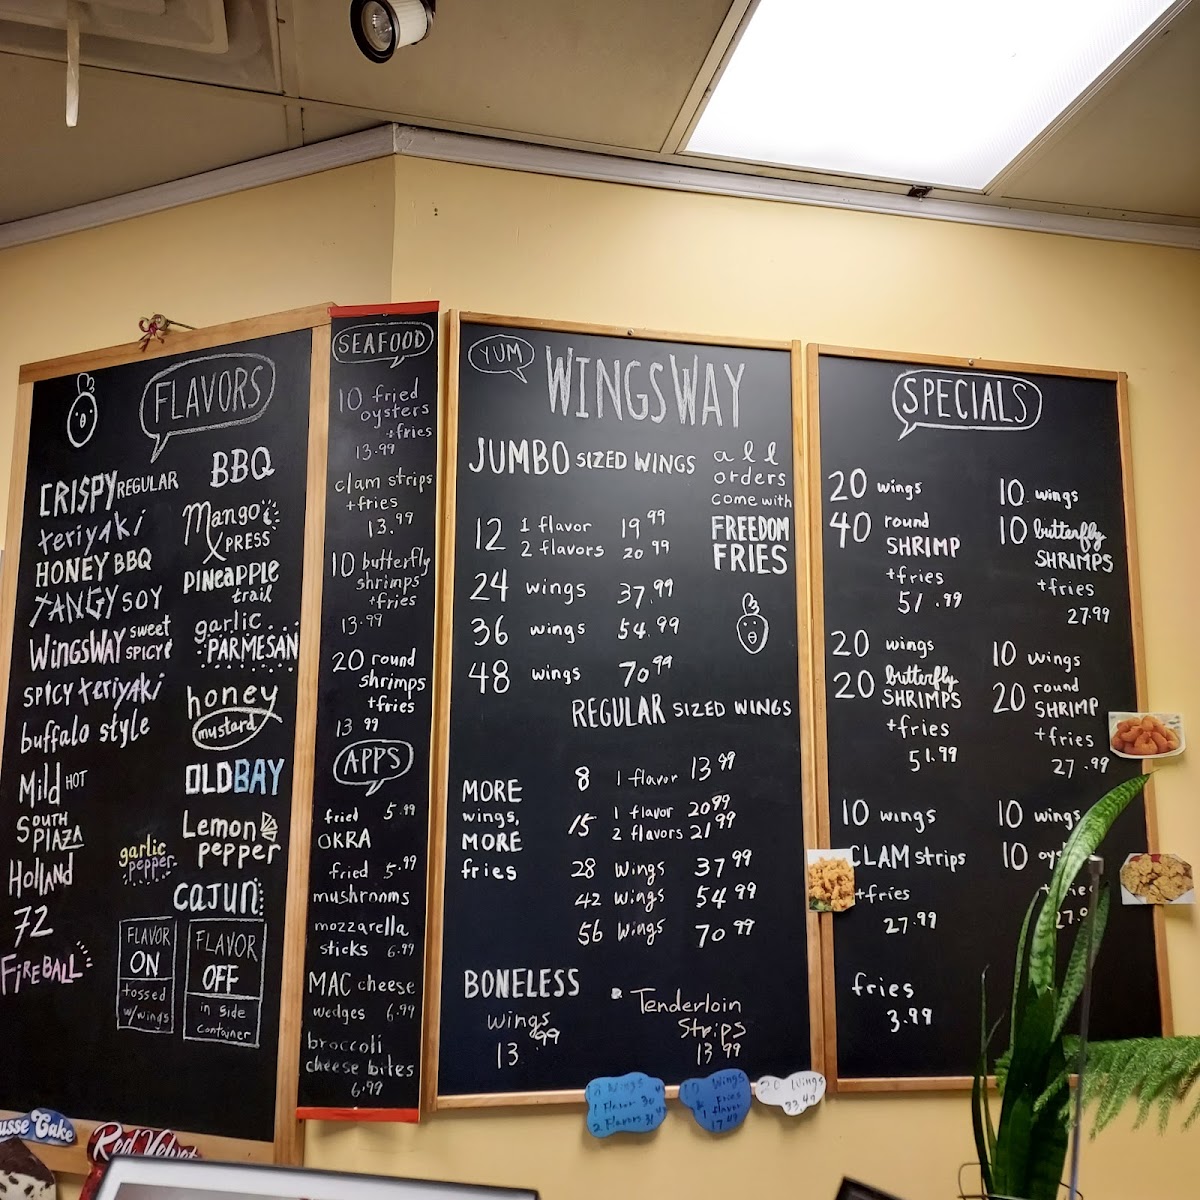 FLAVORS
CRISPY REGULAR
teriyaki
HONEY BBQ
TANGY SOY
WINGSWAY sweet SPICY
SPICY teriyaki
buffalo style
Mild HOT
SOUTH PLAZA
HOLLAND
72
FIREBALL
BBQ
Mango XPRESS
PINEAPPLE trail
garlic PARMESAN
honey mustard
OLD BAY
Lemon pepper
garlic pepper
CAJUN
FLAVOR
ON
tossed
w/wings
FLAVOR
OFF
in side
container
SEAFOOD
10 fried
oysters
+fries
13.99
clam strips
+fries
13.99
10 butterfly
shrimps
+fries
13.99
20 round
shrimps
+fries
13 99
APPS
fried 5.99
OKRA
fried 5.99
mushrooms
mozzarella
sticks 6.99
MAC cheese
wedges 6.99
broccoli
cheese bites
6.99
YUM
WINGSWAY
JUMBO SIZED WINGS
all
orders
come with
FREEDOM
FRIES
12 1 flavor 19 99
2 flavors 20 99
24 wings 37.99
36 wings 54.99
48 wings 70 99
REGULAR SIZED WINGS
MORE
wings,
MORE
fries
8 1 flavor 13 99
15 1 flavor 20 99
2 flavors 21 99
28 wings 37 99
42 wings 54 99
56 wings 70 99
BONELESS
wings
13 .99
Tenderloin
Strips
13 99
SPECIALS
20 wings
40 round
SHRIMP
+fries
51.99
20 wings
20 butterfly
SHRIMPS
+fries
51.99
10 wings
CLAM strips
+fries
27.99
fries
3.99
10 wings
10 butterfly
SHRIMPS
+fries
27.99
10 wings
20 round
SHRIMP
+fries
27.99
10 wings
10
Wings
1 Flavor 30
2 Flavors 31
10 Wings
& Fries
1 Flavor
17.49
20 Wings
33.49
usse Cake
Red Velvet